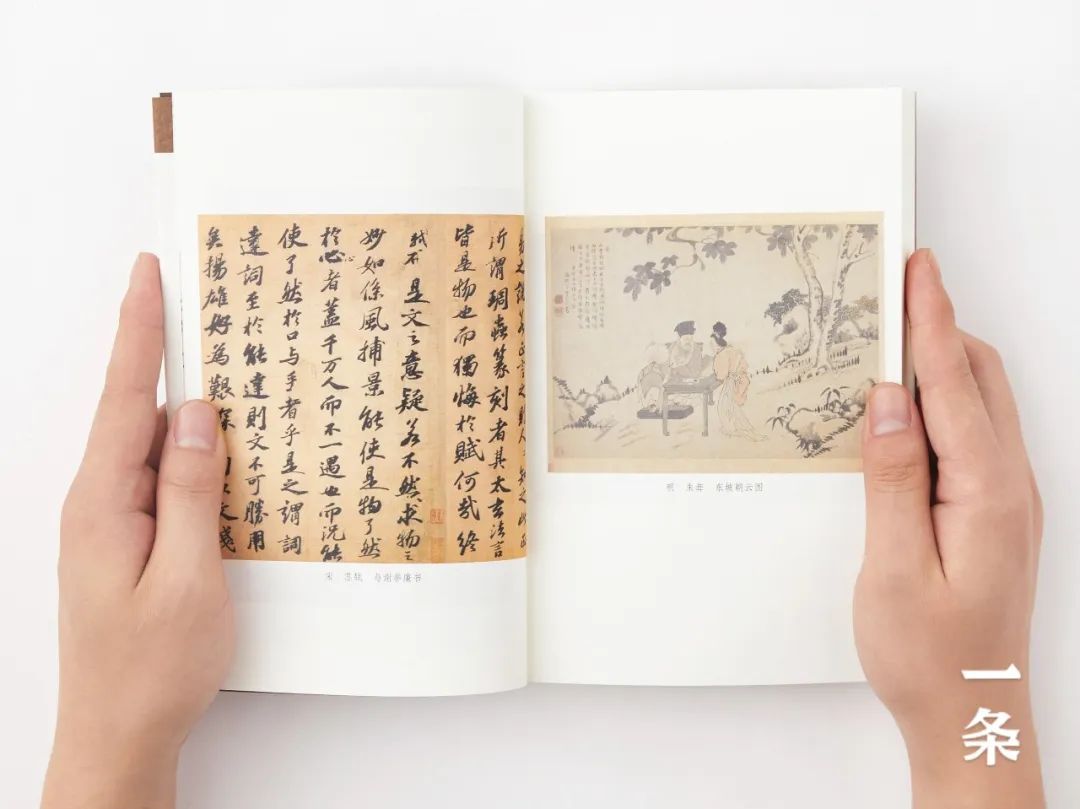 之說若正言之則人人知之此正
所謂琱蟲篆刻者其太玄法言
皆是物也而獨悔於賦何哉終
不是文之意疑若不然求物之
妙如係風捕景能使是物了然
於心者蓋千万人而不一遇也而況能
使了然於口与手者乎是之謂詞
達詞至於能達則文不可勝用
矣揚雄好為艱深以文淺
宋 苏轼 与谢举廉书
明 东坡朝云图
一条